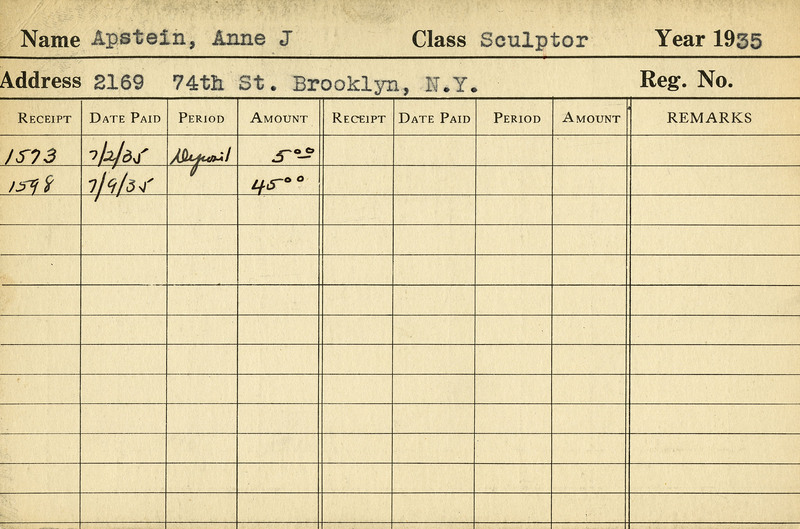 Name Apstein, Anne J Class Sculptor Year 1935
Address 2169 74th St. Brooklyn, N.Y. Reg. No.
RECEIPT DATE PAID PERIOD AMOUNT RECEIPT DATE PAID PERIOD AMOUNT REMARKS
1573 7/2/35 Deposit 5 00
1598 7/9/35 45 00